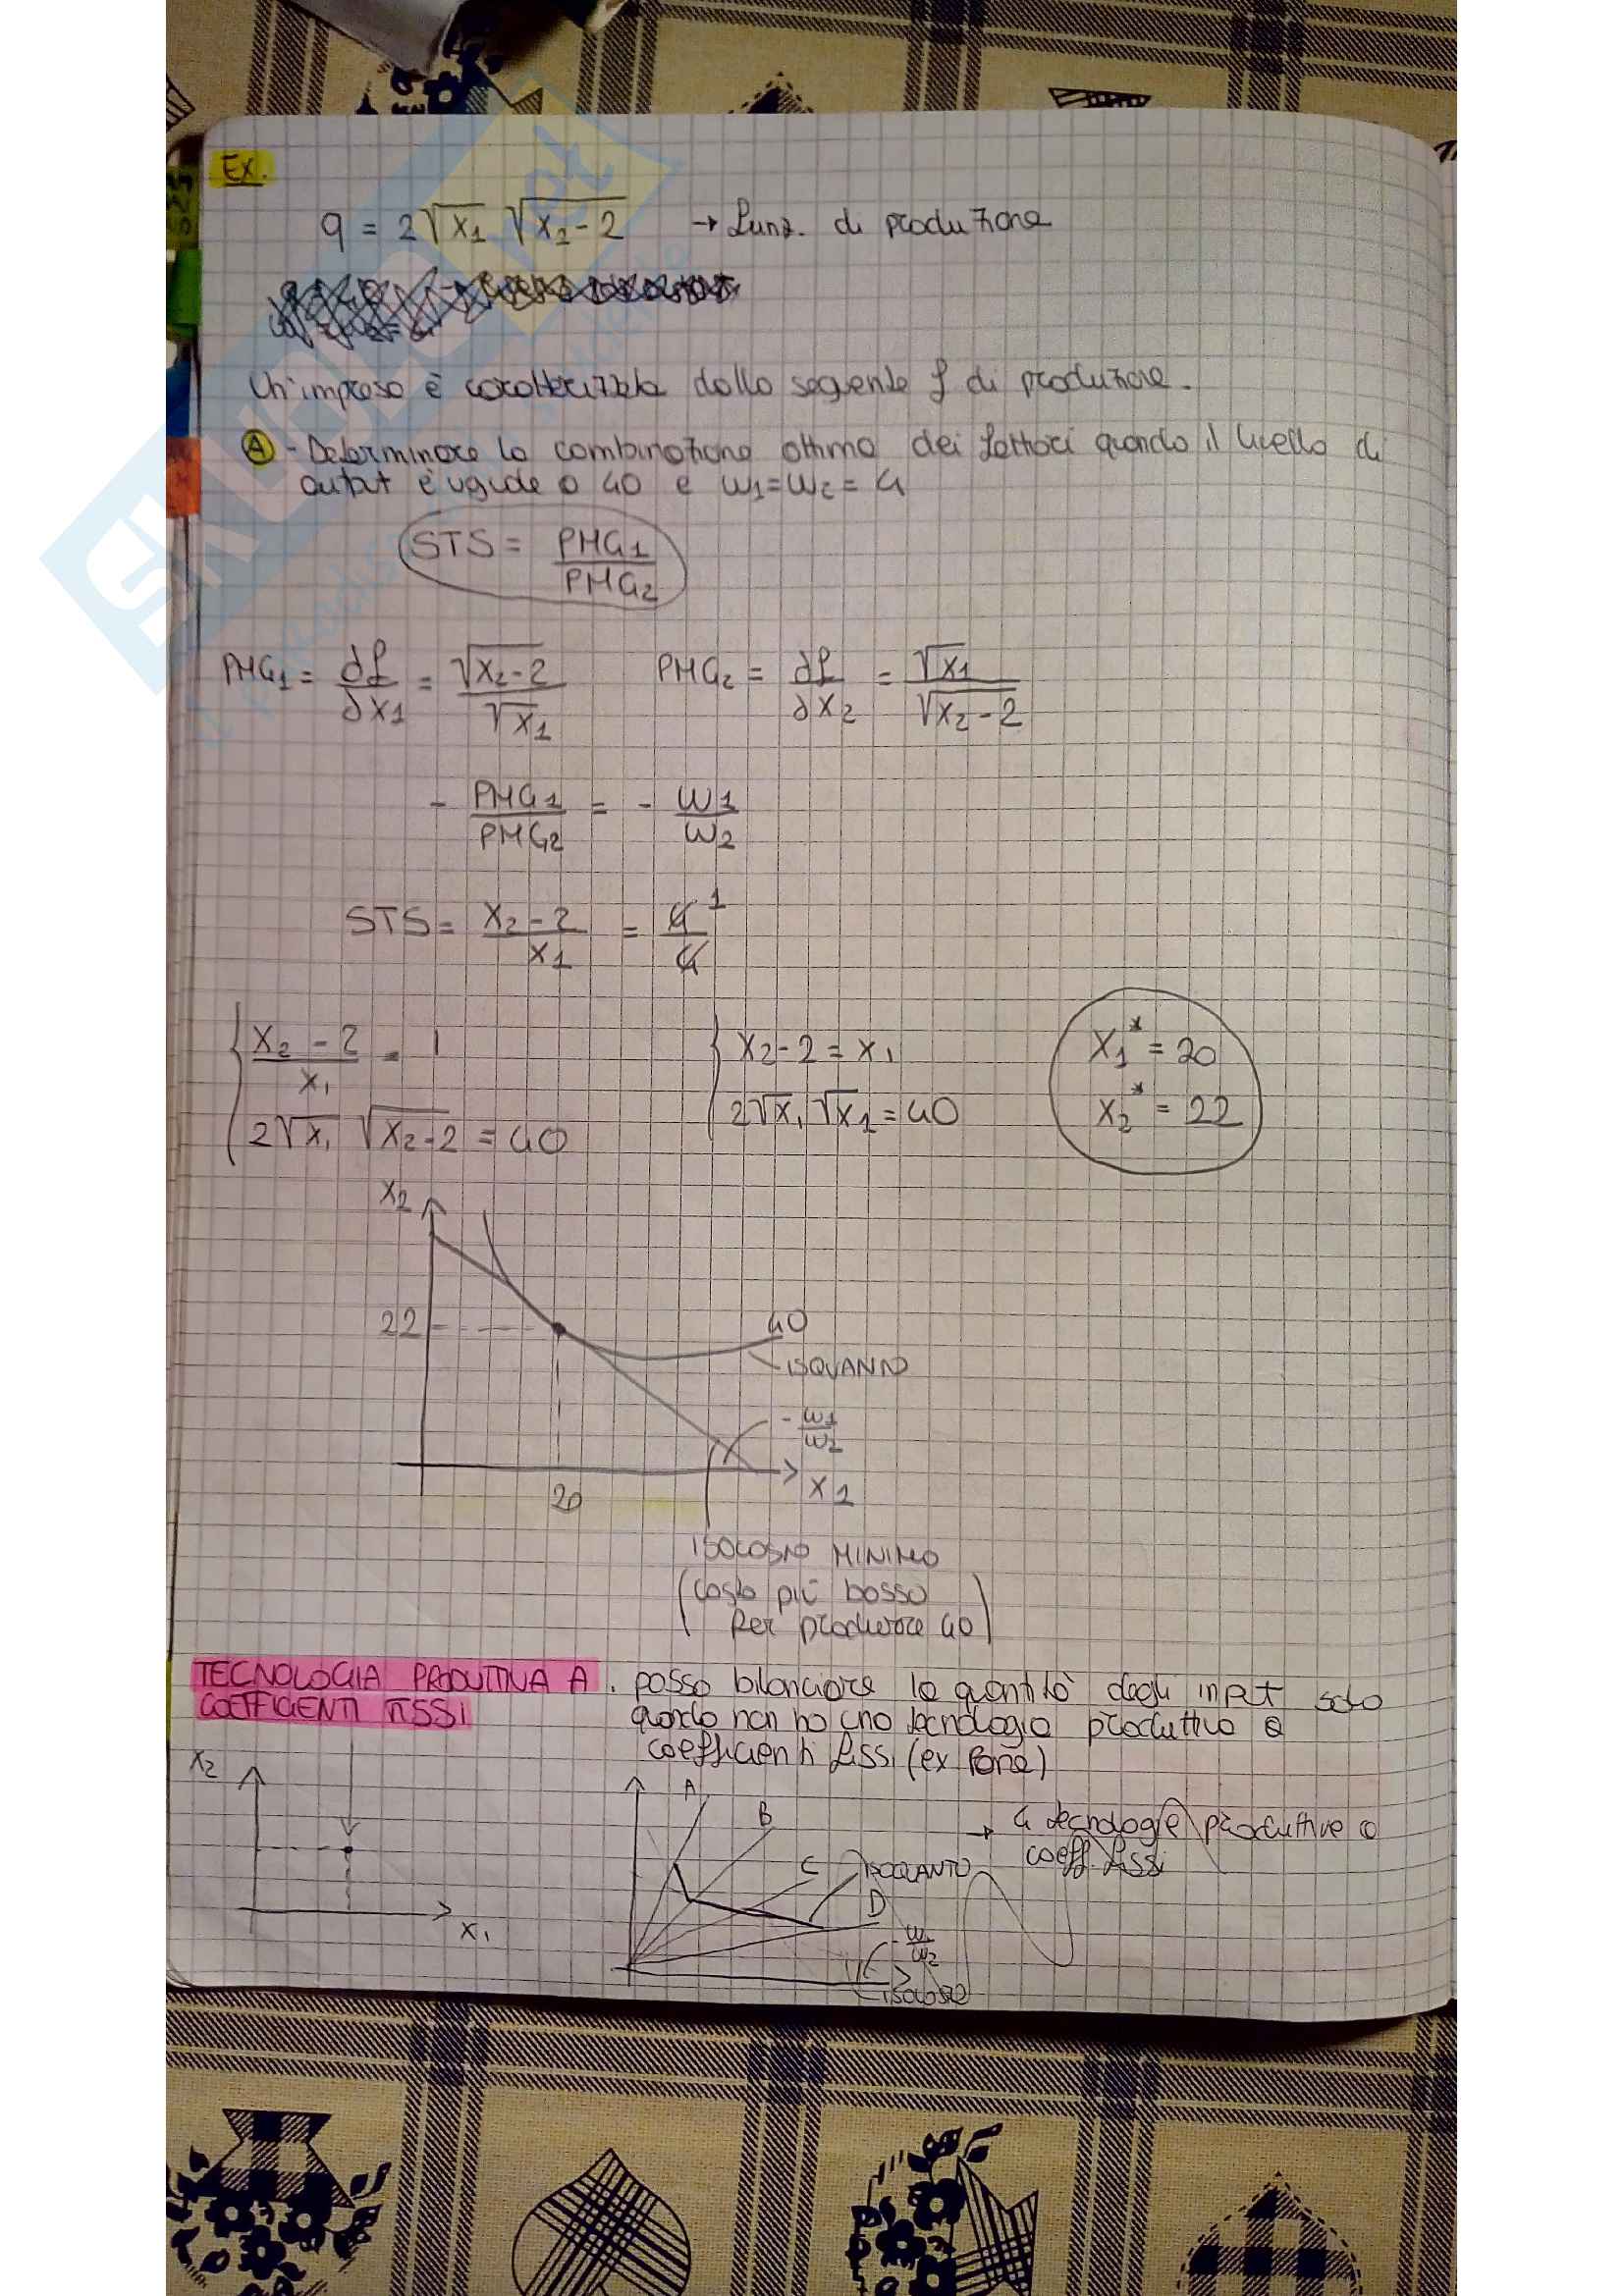 Ex.
q = 2√x1 √x2-2 → Funz. di produzione
Un'impresa è caratterizzata dalla seguente f di produzione.
A - Determinare la combinazione ottima dei fattori quando il livello di
output è uguale a 40 e w1=w2=4
STS = PMG1/PMG2
PMG1 = ∂f/∂x1 = √x2-2/√x1 PMG2 = ∂f/∂x2 = √x1/√x2-2
- PMG1/PMG2 = - w1/w2
STS = x2-2/x1 = 4/4 1
{ x2-2/x1 = 1 { x2-2 = x1 x1* = 20
2√x1 √x2-2 = 40 2√x1 √x1 = 40 x2* = 22
x2
22
40
ISOQUANTO
- w1/w2
x1
20
ISOCOSTO MINIMO
(costo più basso
per produrre 40)
TECNOLOGIA PRODUTTIVA A . posso bilanciare le quantità degli input solo
COEFFICIENTI FISSI quando non ho una tecnologia produttiva a
coefficienti fissi (ex pane)
x2
x1
A
B
C
ISOQUANTO
D
→ 4 tecnologie produttive a
coeff. fissi
- w1/w2
ISOCOSTO